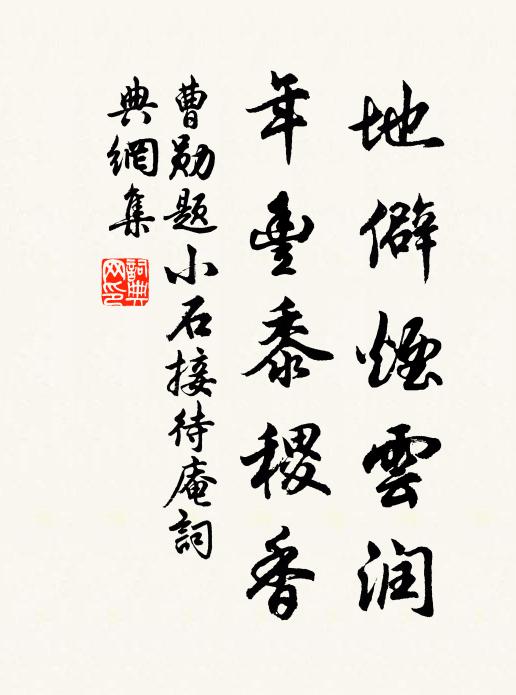 地僻煙雲润
年豊黍稷香
曹勛题小石接待庵詞
典網集
詞典网印